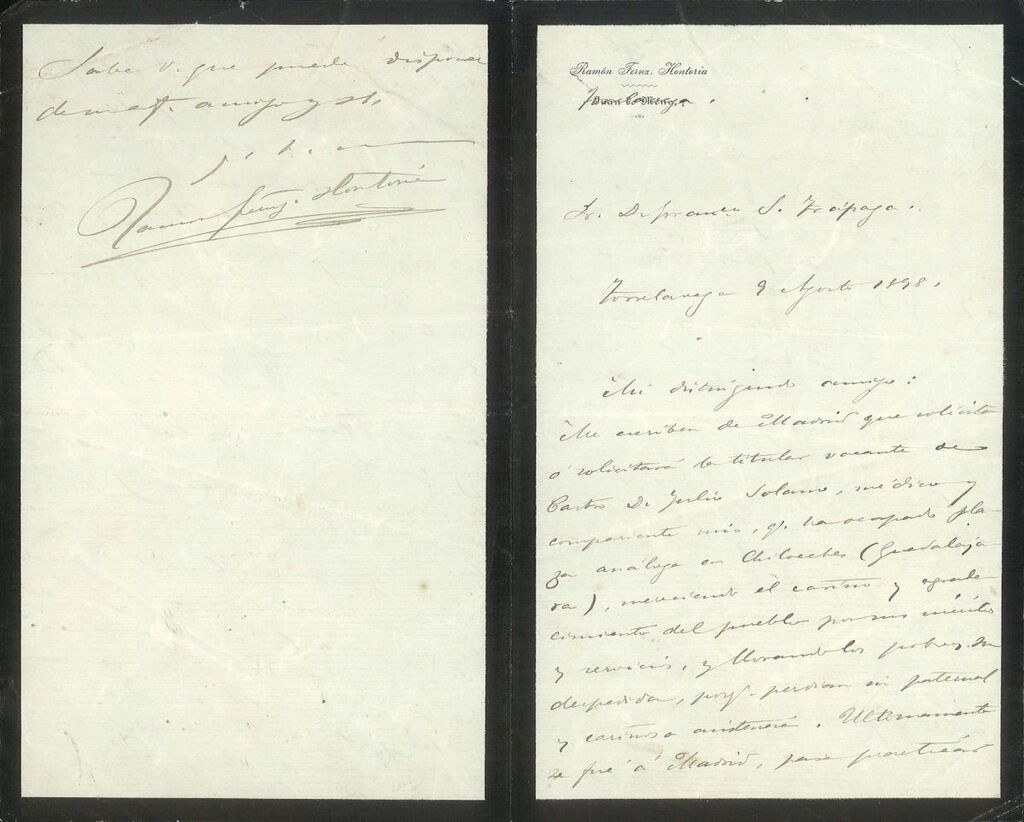 Ramón Fernz. Hontoria
Torrelavega.
Sr. D. S. Trápaga.
Torrelavega 9 Agosto 1898.
Mi distinguido amigo:
Me escriben de Madrid que solicita
ó solicitará la titular vacante de
Castro D. Julio Solano, médico y
compariente mio, q. ha ocupado pla-
za análoga en Chiloeches (Guadalaja-
ra), mereciendo el cariño y agrade-
cimiento del pueblo por sus méritos
y servicios, y llorando los pobres su
despedida, porq. perdian su paternal
y cariñosa asistencia. Ultimamente
se fué á Madrid, para practicar
Sabe V. que puede disponer
de su aff. amigo y
Ramon Fernz. Hontoria